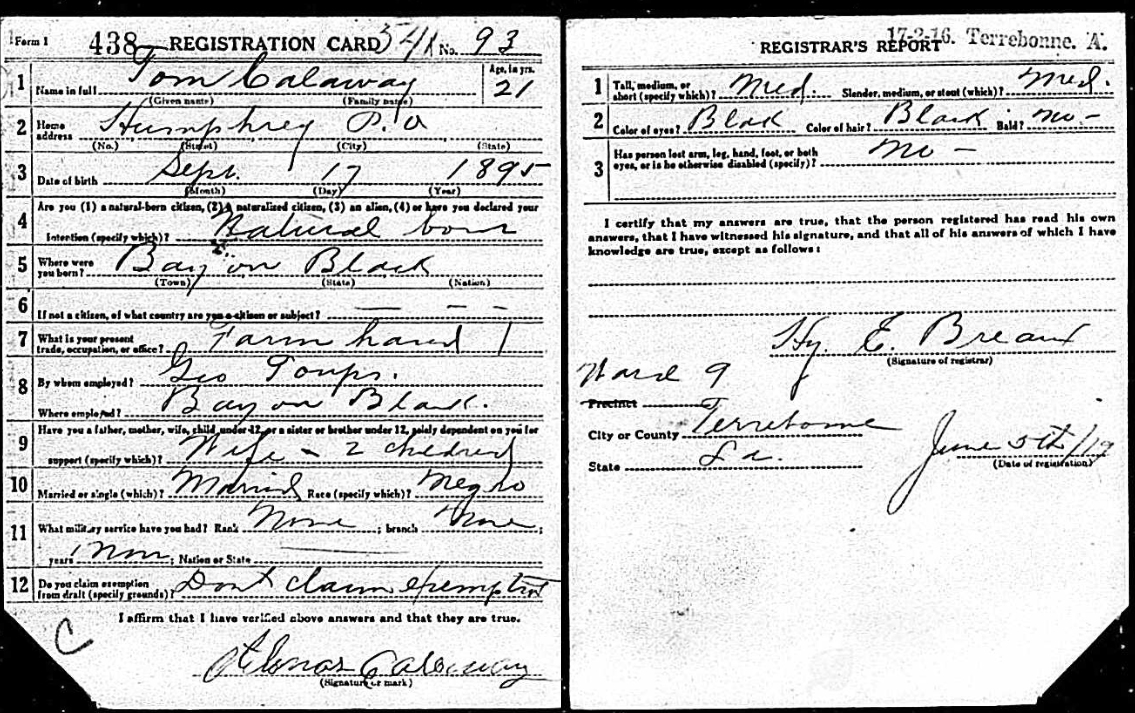 Form 1 438 REGISTRATION CARD 541 No. 93
1 Name in full Tom Calaway Age, in yrs. 21
(Given name) (Family name)
2 Home address Humphrey P.O
(No.) (Street) (City) (State)
3 Date of birth Sept. 17 1895
(Month) (Day) (Year)
4 Are you (1) a natural-born citizen, (2) a naturalized citizen, (3) an alien, (4) or have you declared your
intention (specify which)? Natural born
5 Where were you born? Bayou Black
(Town) (State) (Nation)
6 If not a citizen, of what country are you a citizen or subject? — — —
7 What is your present trade, occupation, or office? Farm hand 1
8 By whom employed? Geo Toups.
Where employed? Bayou Black.
9 Have you a father, mother, wife, child under 12, or a sister or brother under 12, solely dependent on you for
support (specify which)? Wife - 2 children
10 Married or single (which)? Married Race (specify which)? Negro
11 What military service have you had? Rank None ; branch None ;
years None ; Nation or State
12 Do you claim exemption from draft (specify grounds)? Dont claim exemption
I affirm that I have verified above answers and that they are true.
C
Calaway
(Signature or mark)
17-2-16. Terrebonne. A.
REGISTRAR'S REPORT
1 Tall, medium, or short (specify which)? Med. Slender, medium, or stout (which)? Med.
2 Color of eyes? Black Color of hair? Black Bald? No -
3 Has person lost arm, leg, hand, foot, or both eyes, or is he otherwise disabled (specify)? No -
I certify that my answers are true, that the person registered has read his own
answers, that I have witnessed his signature, and that all of his answers of which I have
knowledge are true, except as follows:
Hy. E. Breaux
(Signature of registrar)
Ward 9
Precinct
City or County Terrebonne
State La.
June 5th/17
(Date of registration)